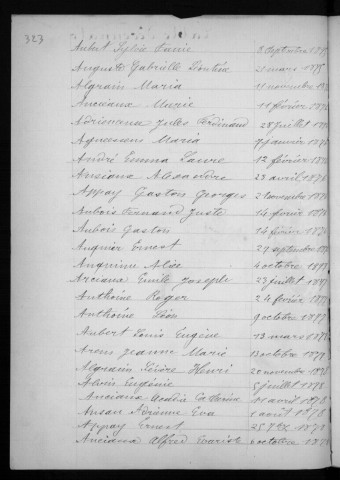 323
Aubert Sylvie Fanie 3 septembre 187
Auguste Gabrielle 21 mars 1875
Algrain Maria 11 novembre 18
Anciana Marie 11 février 1876
Adriensens Jules Ferdinand 28 juillet 187
Agneessens Maria 7 janvier 187
André Emma Laure 12 février 187
Anciana Alexandre 23 avril 1876
Appay Gaston Georges 2 novembre 187
Aubois Fernand Juste 14 février 1876
Aubois Gaston 14 février 187
Auguier Ernest 27 septembre
Alice 4 octobre 1877
Arciana Emile Joseph 23 juillet 187
Anthoine Roger 24 février 187
Anthoine Léon 9 octobre 1877
Aubert Louis Eugène 13 mars 187
Arens Jeanne Marie 13 octobre 1877
Algrain Henri 20 novembre 1878
Eugénie 5 juillet 1878
Anciana 11 avril 1878
Anson Adrienne Eva 1 août 1878
Appay Ernest 25 7bre 187
Anciana Alfred Evariste 6 octobre 187